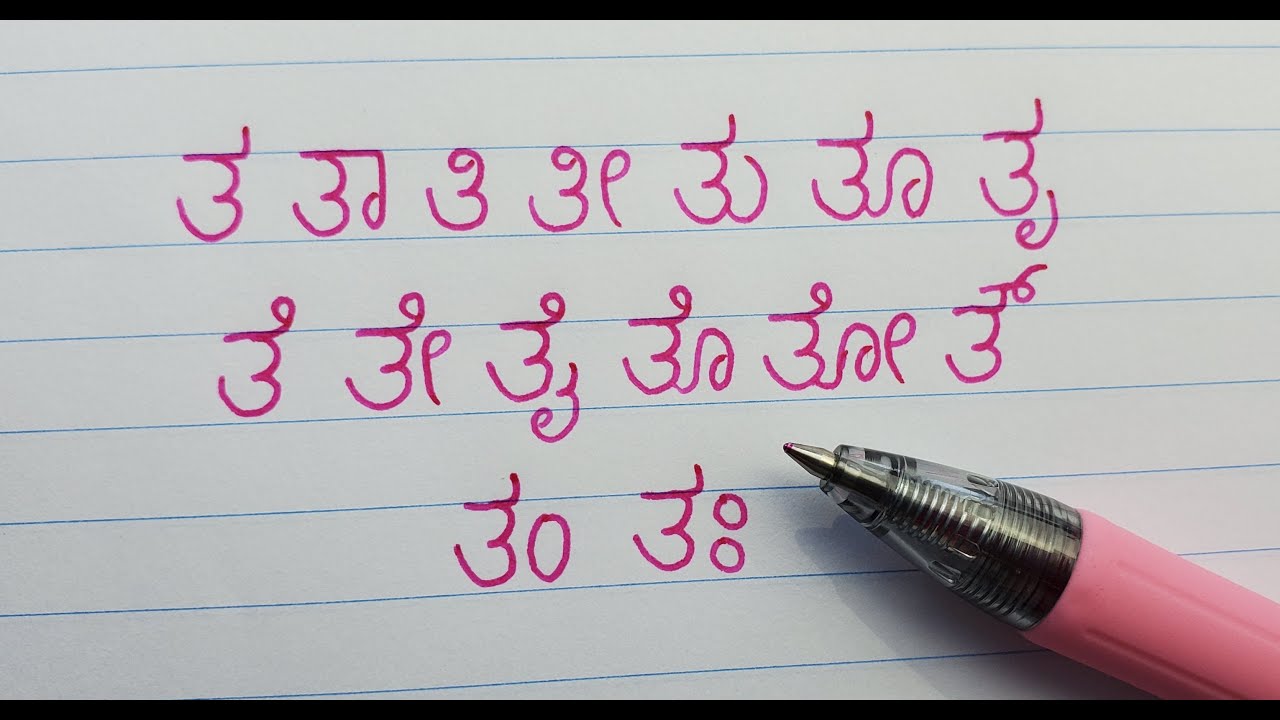 ತ ತಾ ತಿ ತೀ ತು ತೂ ತೃ
ತೆ ತೇ ತೈ ತೊ ತೋ ತೌ
ತಂ ತಃ